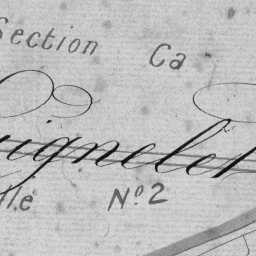 Section Ca
ignelet
lle N° 2